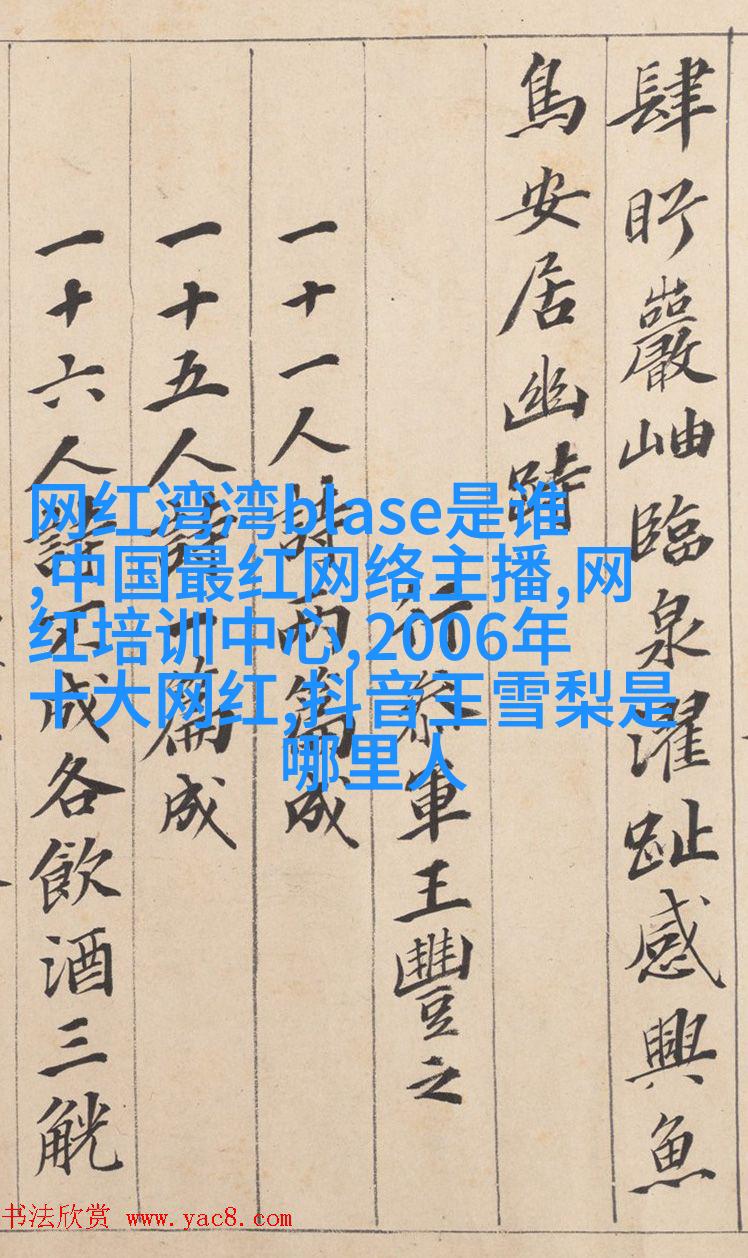 肆盻巖岫臨泉濯趾感興魚
鳥安居幽跱
行參軍王豐之
一十一人詩兩篇成
一十五人詩一篇成
一十六人詩不成各飲酒三觥
网红湾湾blase是谁
,中国最红网络主播,网
红培训中心,2006年
十大网红,抖音王雪梨是
哪里人
书法欣赏 www.yac8.com